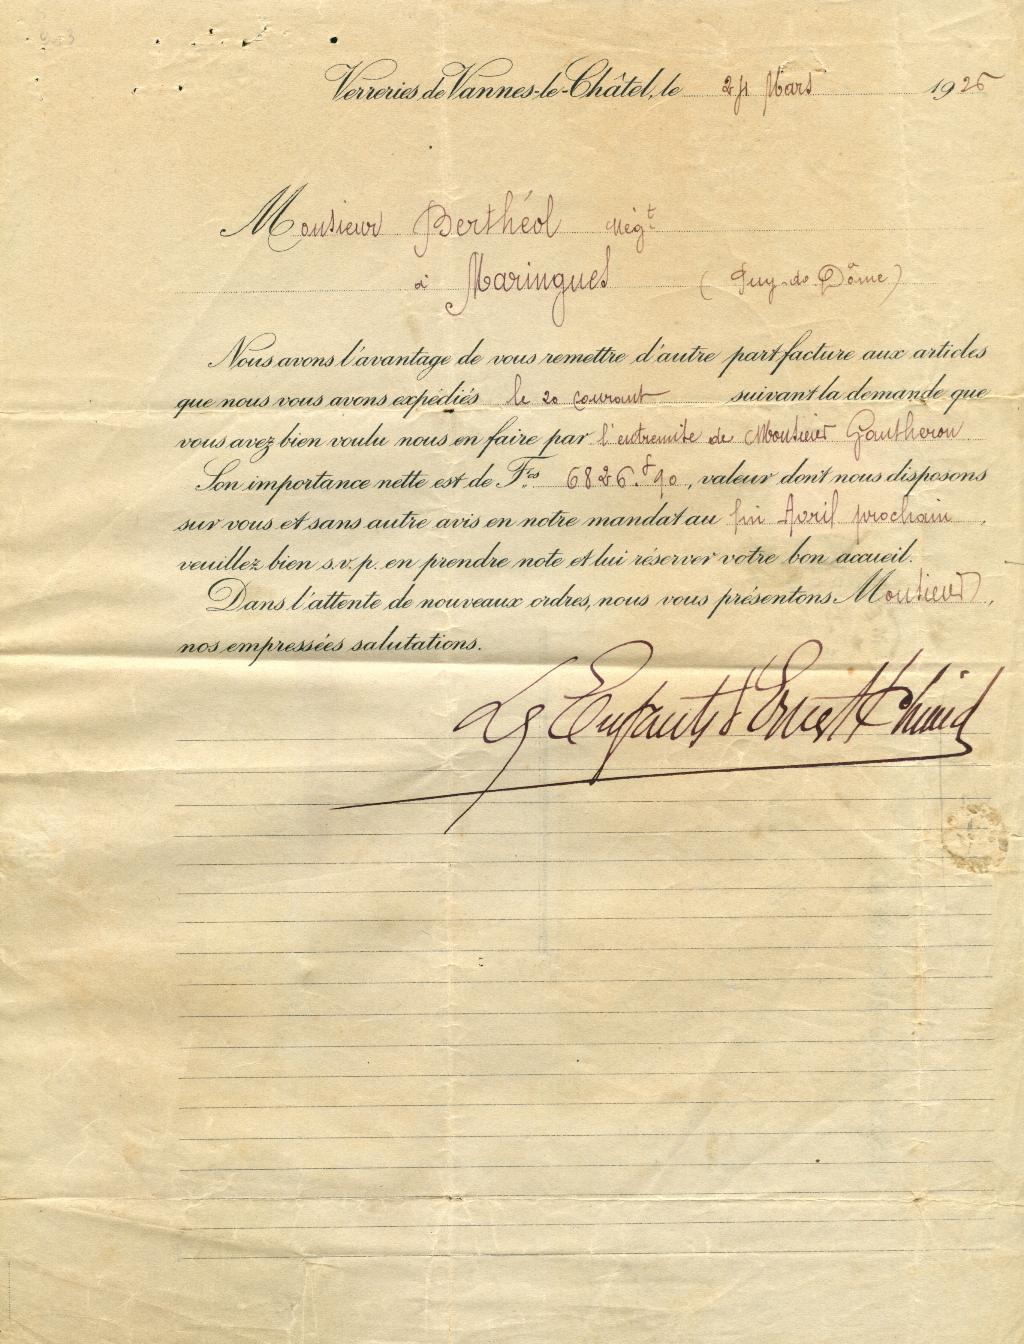 Verreries de Vannes-le-Châtel, le 24 Mars 1926
Monsieur Berthéol Nég.t
à Maringues (Puy-de-Dôme)
Nous avons l'avantage de vous remettre d'autre part facture aux articles
que nous vous avons expédiés le 20 courant suivant la demande que
vous avez bien voulu nous en faire par l'entremite de Monsieur Gautheron
Son importance nette est de F.cs 6826.f90, valeur dont nous disposons
sur vous et sans autre avis en notre mandat au fin Avril prochain,
veuillez bien s.v.p. en prendre note et lui réserver votre bon accueil.
Dans l'attente de nouveaux ordres, nous vous présentons Monsieur,
nos empressées salutations.
Les Enfants d'Ernest